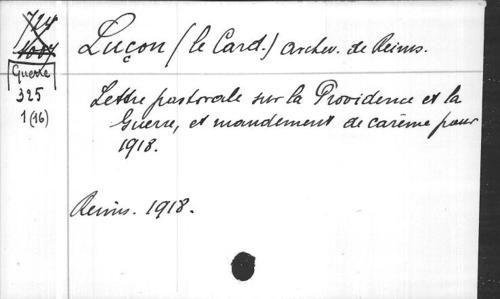 Guerre
325
1(16)
Luçon (le Card.) archev. de Reims.
Lettre pastorale sur la Providence et la
Guerre, et mandement de carême pour
1918.
Reims. 1918.